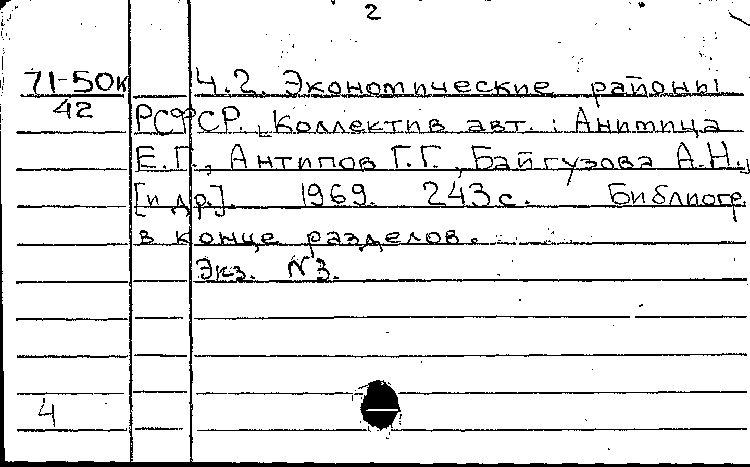 2
71-50к Ч.2. Экономические районы
42 РСФСР. [Коллектив авт.: Анимица
Е.Г., Антипов Г.Г., Байгузова А.Н.,
[и др]. 1969. 243с. Библиогр.
в конце разделов.
Экз. №3.
4